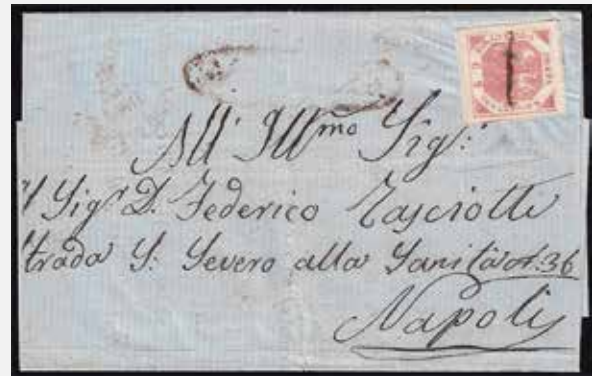 All' Ill.mo Sig.r
l Sig.r D. Federico Tasciotti
trada S. Severo alla Sanità n.36
Napoli